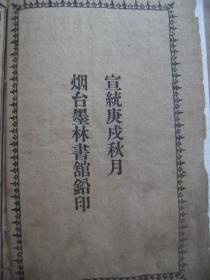 宣統庚戌秋月
烟台墨林書舘鉛印